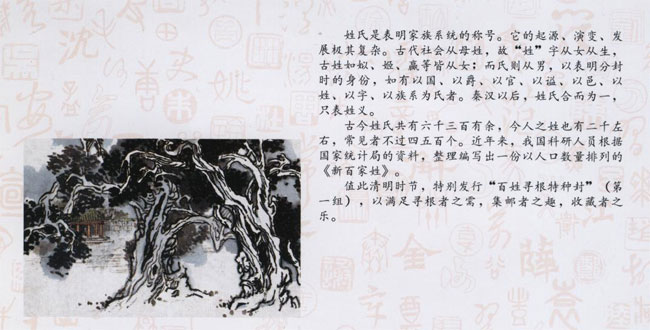 姓氏是表明家族系统的称号。它的起源、演变、发
展极其复杂。古代社会从母姓，故“姓”字从女从生，
古姓如姒、姬、嬴等皆从女；而氏则从男，以表明分封
时的身份，如有以国、以爵、以官、以谥、以邑、以
姓、以字、以族系为氏者。秦汉以后，姓氏合而为一，
只表姓义。
古今姓氏共有六千三百有余，今人之姓也有二千左
右，常见者不过四五百个。近年来，我国科研人员根据
国家统计局的资料，整理编写出一份以人口数量排列的
《新百家姓》。
值此清明时节，特别发行“百姓寻根特种封”（第
一组），以满足寻根者之需，集邮者之趣，收藏者之
乐。
沈
唐
安
薛
金